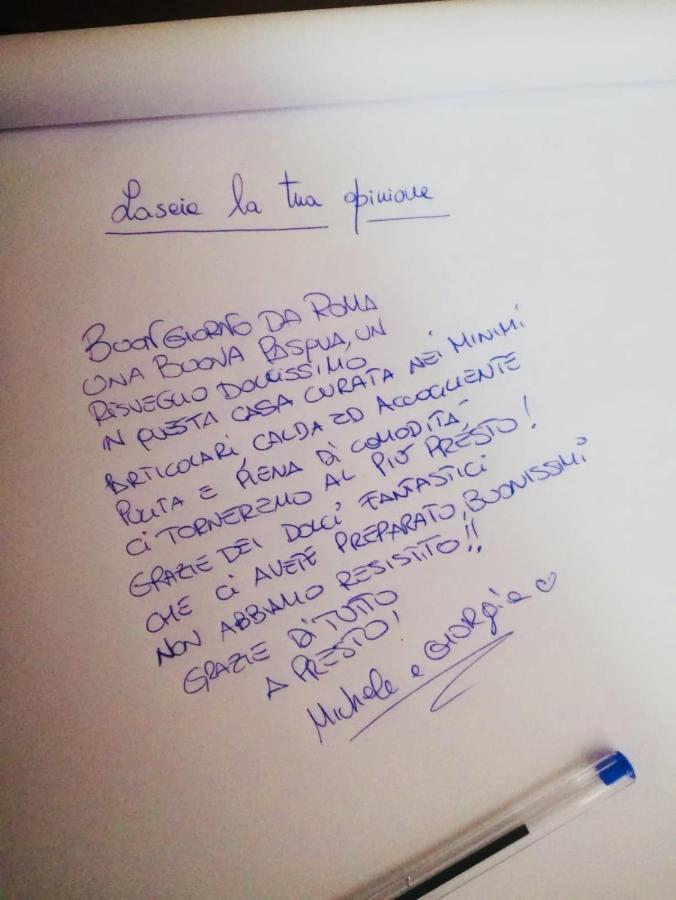 Lascia la tua opinione
BUONGIORNO DA ROMA
UNA BUONA PASQUA, UN
RISVEGLIO DOLCISSIMO
IN QUESTA CASA CURATA NEI MINIMI
PARTICOLARI, CALDA ED ACCOGLIENTE
PULITA E PIENA DI COMODITÀ,
CI TORNEREMO AL PIÙ PRESTO!
GRAZIE DEI DOLCI FANTASTICI
CHE CI AVETE PREPARATO, BUONISSIMI
NON ABBIAMO RESISTITO!!
GRAZIE DI TUTTO
A PRESTO!
Michele e GIORGia ♡